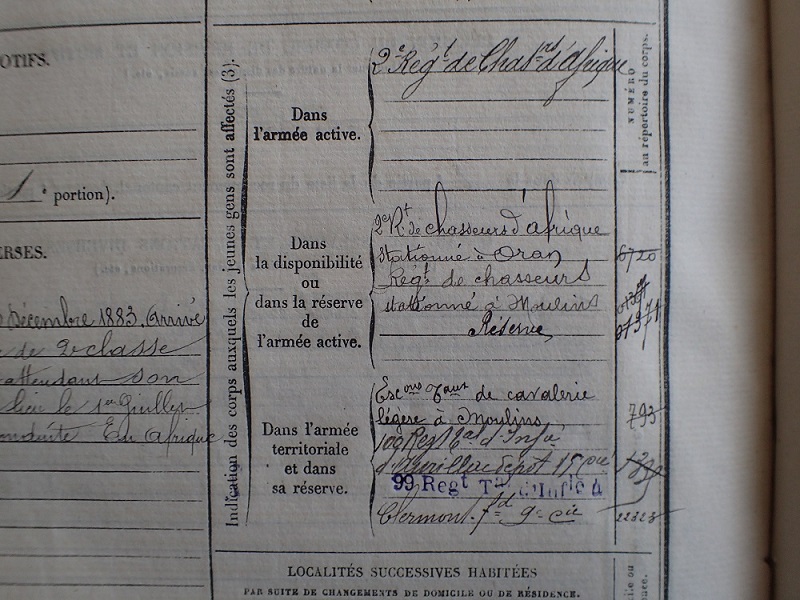 OTIFS.
1e portion).
ERSES.
Décembre 1883. Arrivé
de 2e classe
attendant son
lieu le 1er Juillet
conduite En Afrique
Indication des corps auxquels les jeunes gens sont affectés (3).
Dans
l'armée active.
2e Régt de Chasrs d'Afrique
NUMÉRO
au répertoire du corps.
Dans
la disponibilité
ou
dans la réserve
de
l'armée active.
2e Rt de chasseurs d'afrique
stationné à Oran
6720
Régt de chasseurs
stationné à Moulins
Réserve
Dans l'armée
territoriale
et dans
sa réserve.
Escons de cavalerie
légère à Moulins
793
d'Aurillac dépôt 15e cie
99 Regt
Clermont-fd 9e cie
22323
LOCALITÉS SUCCESSIVES HABITÉES
PAR SUITE DE CHANGEMENTS DE DOMICILE OU DE RÉSIDENCE.